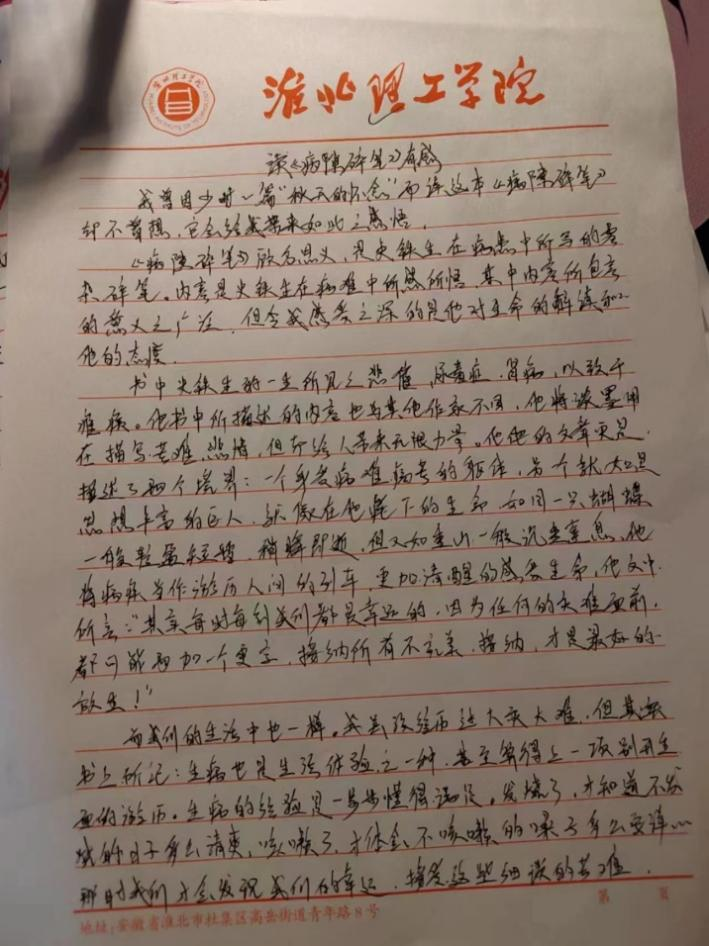 淮北理工学院
读《病隙碎笔》有感
我曾因少时一篇“秋天的怀念”而读这本《病隙碎笔》
却不曾想，它会给我带来如此之感悟。
《病隙碎笔》顾名思义，是史铁生在病患中所写的
碎笔。内容是史铁生在病难中所感所悟，其中内容所包含
的意义之广泛，但令我感受之深的是他对生命的解读和
他的态度。
书中史铁生的一生所见之悲怆，尿毒症、肾病，以致于
瘫痪。他书中所描述的内容也与其他作家不同，他将淡墨用
在描写苦难、悲情，但却给人带来无限力量。他的文章更是
描述了两个境界：一个承受病难病苦的躯体，另一个就是
思想丰富的巨人，在他笔下的生命，如同一只蝴蝶
一般轻盈，稍瞬即逝，但又如重山一般沉重，他
将病痛当作游历人间的列车，更加清醒的感受生命，他文中
所言：“其实每时每刻我们都是幸运的，因为任何的灾难面前，
都可能再加一个更字，接纳所有不完美，接纳，才是最好的
放生！”
而我们的生活中也一样。我虽没经历过大灾大难，但其实
书上所记：生病也是生活体验之一种，甚至算得上一项别开生
面的游历。生病的经验是一步步懂得满足。发烧了，才知道不发
烧的日子多么清爽，咳嗽了，才体会不咳嗽的嗓子多么安详。
那时我们才会发现我们的幸运，接受这些细碎的苦难。
第 页
地址:安徽省淮北市杜集区高岳街道青年路8号